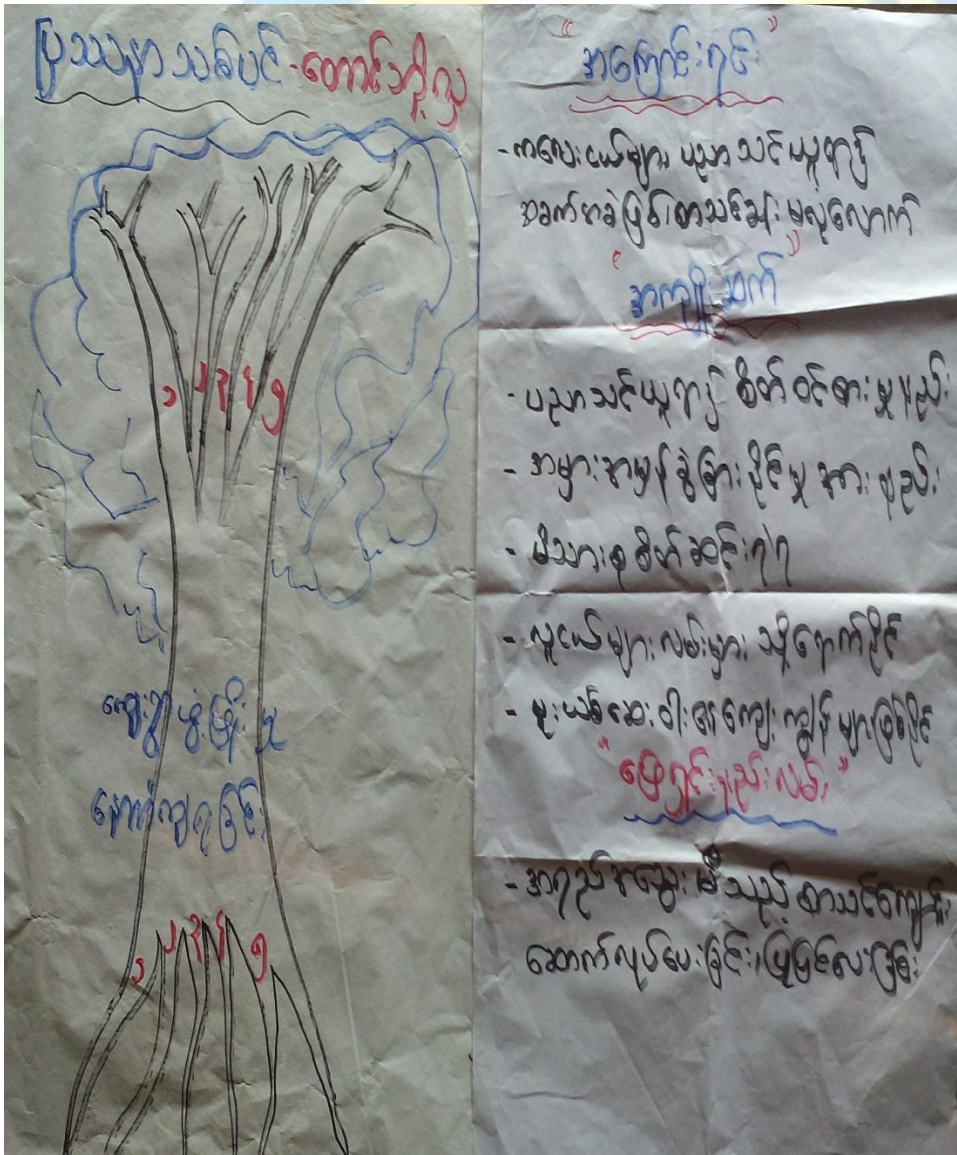 ပြဿနာသစ်ပင် -တောင်ဘို့လှ
၁ ၂ ၃ ၄ ၅
ကျေးရွာဖွံ့ဖြိုးမှု
နောက်ကျရခြင်း
၁ ၂ ၃ ၄ ၅
"အကြောင်းရင်း"
-ကလေးငယ်များ ပညာသင်ယူရာ၌
အခက်အခဲဖြစ်၊စာသင်ခန်း မလုံလောက်
"အကျိုးဆက်"
- ပညာသင်ယူရာ၌ စိတ်ဝင်စားမှုနည်း
- အမှားအမှန်ခွဲခြားနိုင်မှု အားနည်း
- မိသားစုစိတ်ဆင်းရဲရ
- လူငယ်များလမ်းမှား သို့ရောက်နိုင်
- မူးယစ်ဆေးဝါးကျေးကျွန်များဖြစ်နိုင်
"ဖြေရှင်းနည်းလမ်း"
- အရည်အသွေးမီသည့်စာသင်ကျောင်း
ဆောက်လုပ်ပေးခြင်း၊ပြုပြင်ပေးခြင်း